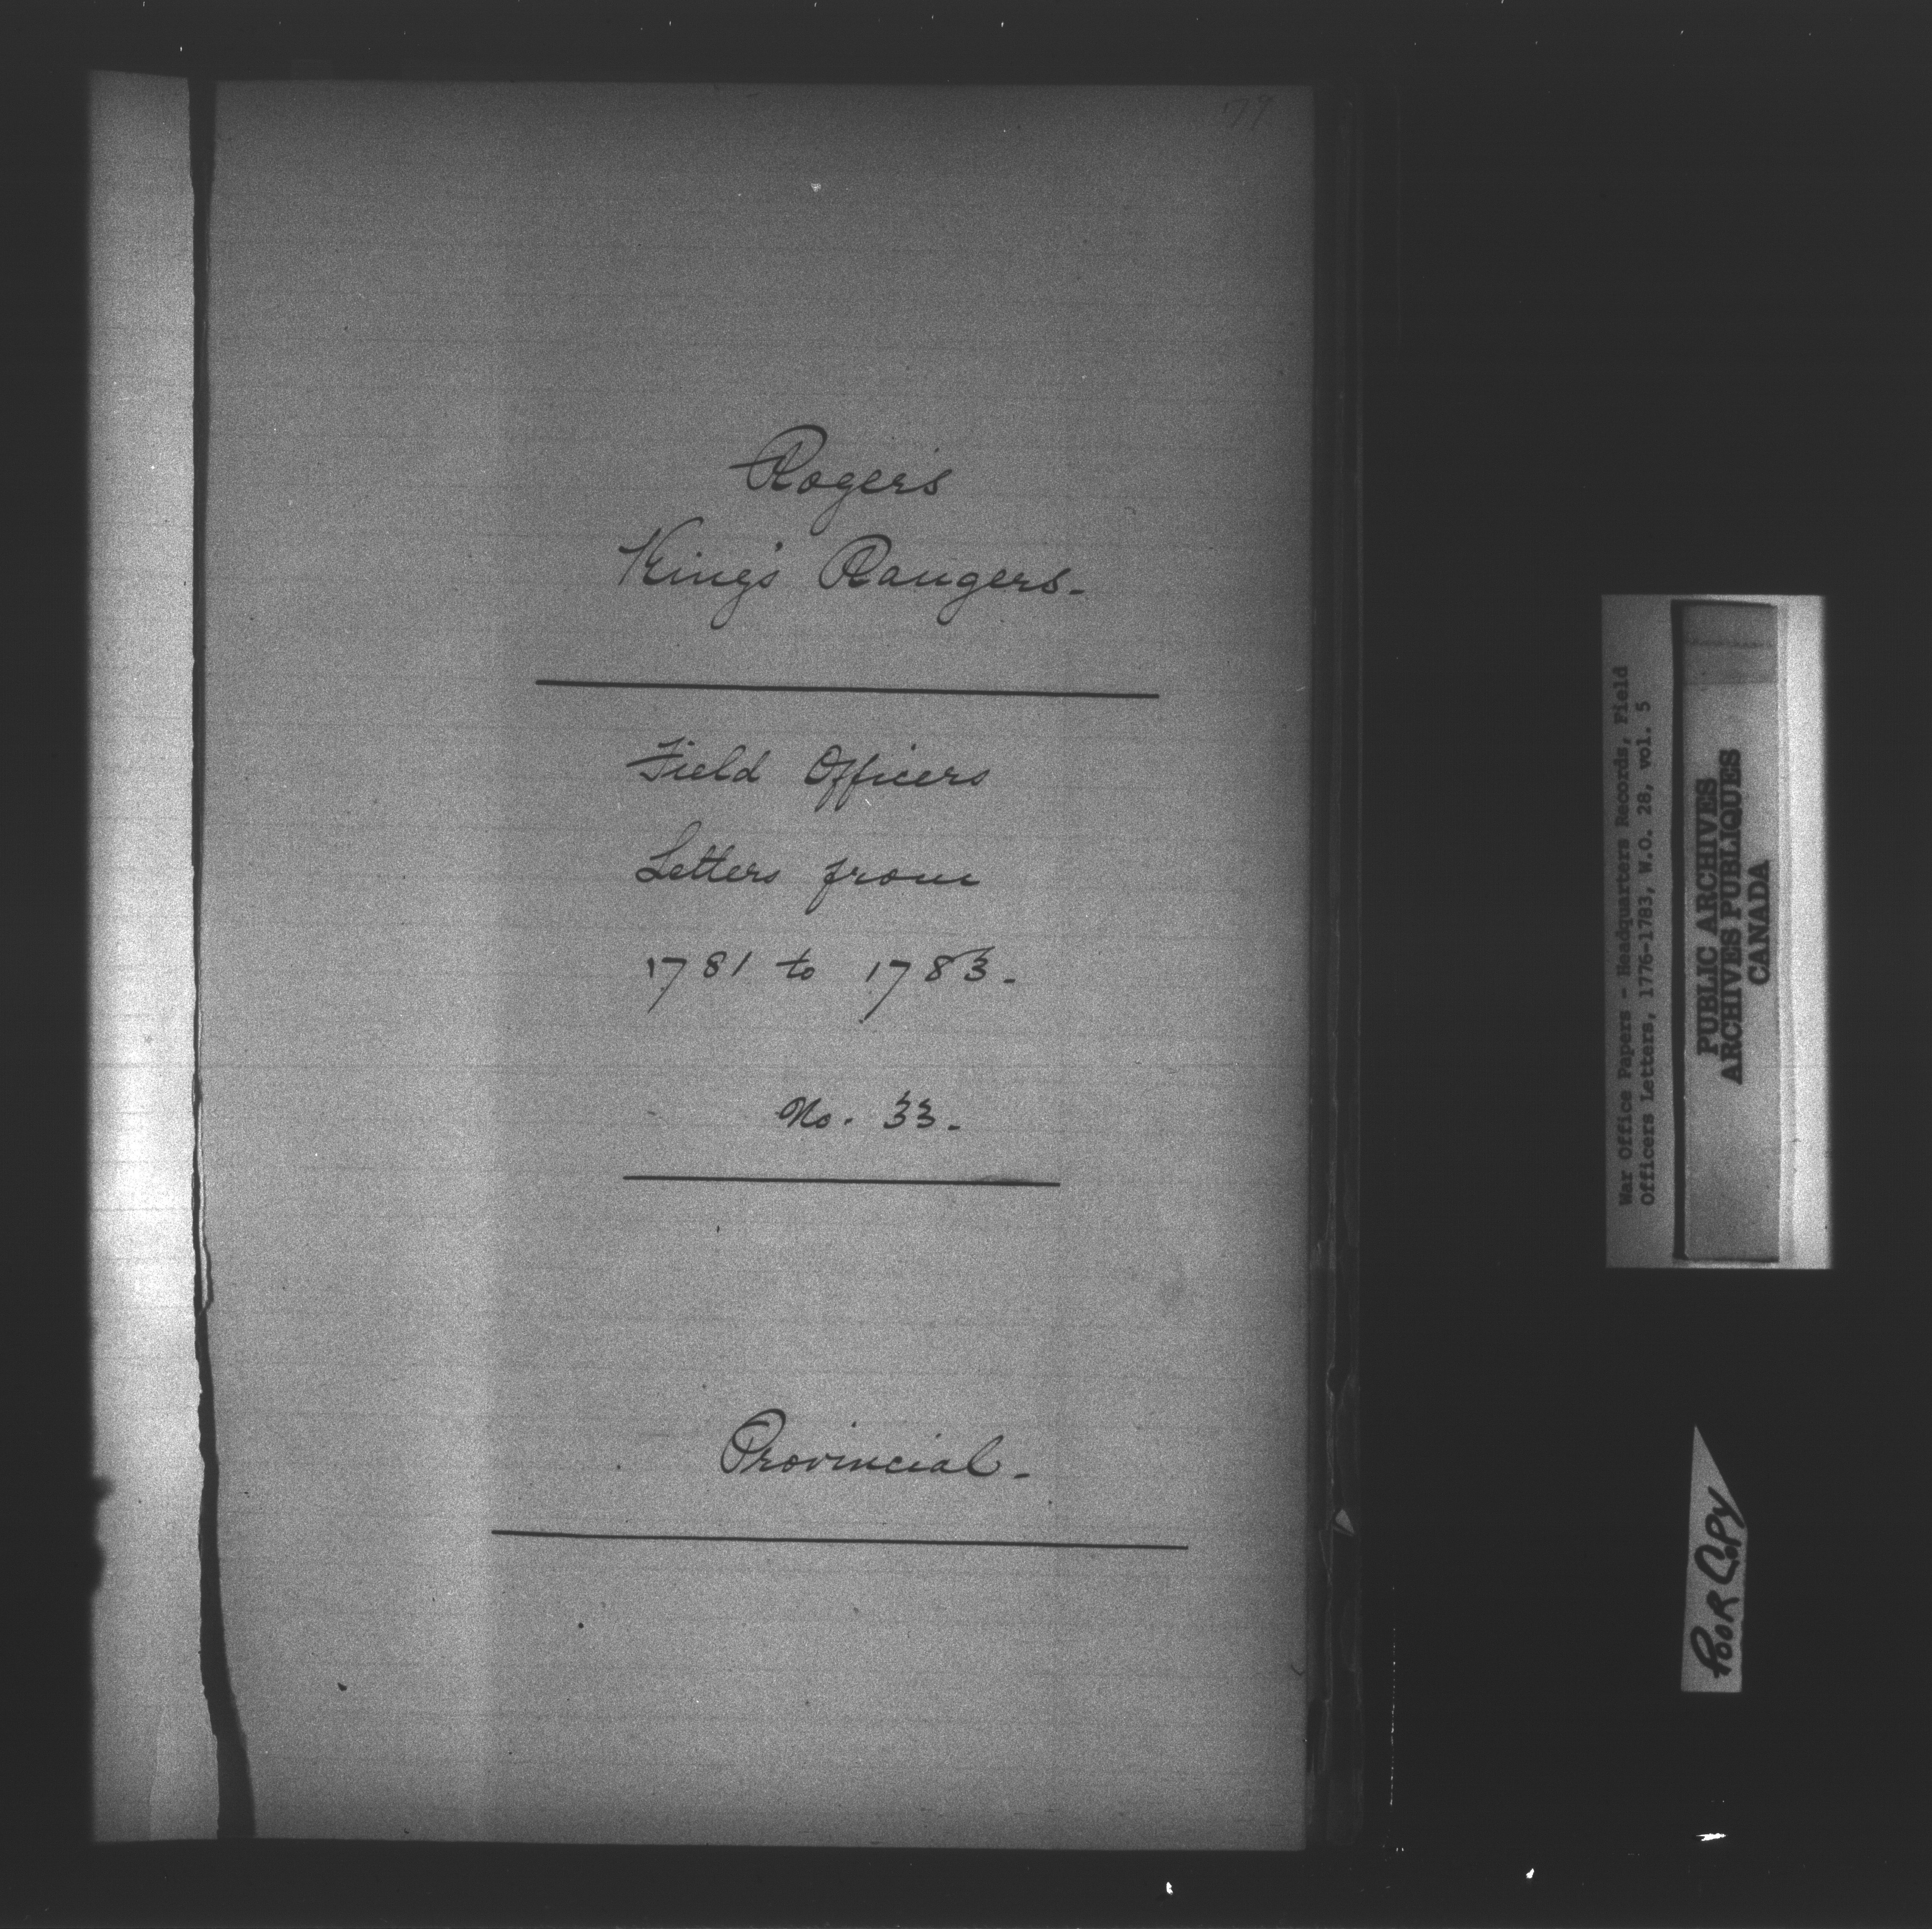 79
Rogers
King's Rangers.
Field Officers
Letters from
1781 to 1783.
No. 33.
Provincial.
War Office Papers - Headquarters Records, Field
Officers Letters, 1776-1783, W.O. 28, vol. 5
PUBLIC ARCHIVES
ARCHIVES PUBLIQUES
CANADA
POOR COPY